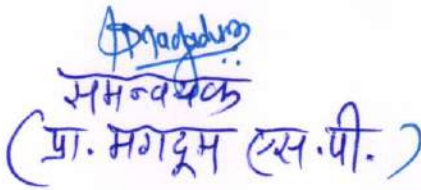 समन्वयक
(प्रा. मगदूम एस. पी.)